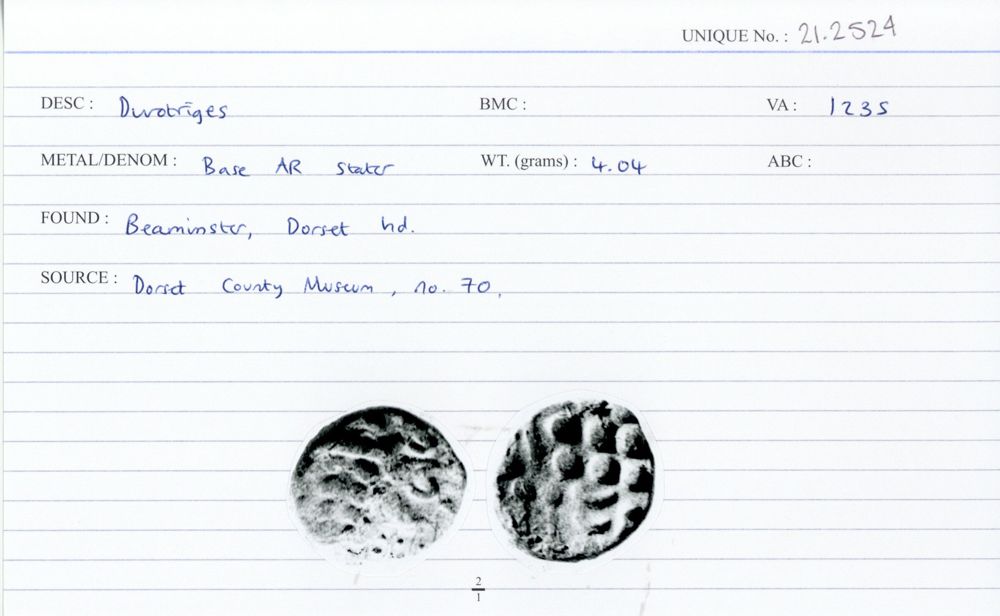 UNIQUE No. : 21.2524
DESC : Durotriges BMC : VA : 1235
METAL/DENOM : Base AR stater WT. (grams) : 4.04 ABC :
FOUND : Beaminster, Dorset hd.
SOURCE : Dorset County Museum, no. 70,
2
1